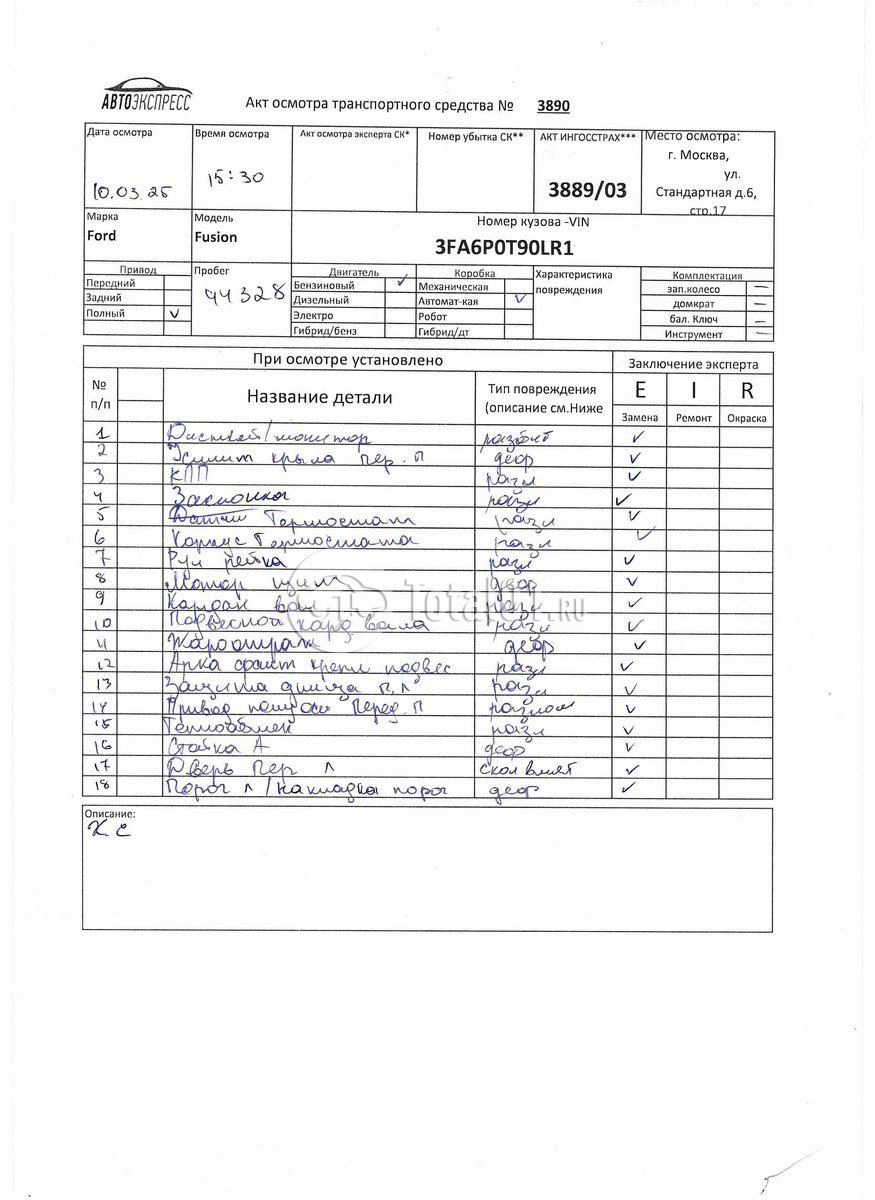 АВТОЭКСПРЕСС
Акт осмотра транспортного средства № 3890
Дата осмотра Время осмотра Акт осмотра эксперта СК* Номер убытка СК** АКТ ИНГОССТРАХ*** Место осмотра:
г. Москва,
ул.
10.03.25 15:30 3889/03 Стандартная д.6,
стр.17
Марка Модель Номер кузова -VIN
Ford Fusion 3FA6P0T90LR1
Привод Пробег Двигатель Коробка Характеристика повреждения Комплектация
Передний 94 328 Бензиновый ✓ Механическая зап.колесо —
Задний Дизельный Автомат-кая V домкрат —
Полный V Электро Робот бал. Ключ —
Гибрид/бенз Гибрид/дт Инструмент —
При осмотре установлено Заключение эксперта
№ п/п Название детали Тип повреждения (описание см.Ниже E I R
Замена Ремонт Окраска
1 Дисплей/монитор разбит ✓
2 Усилит крыла пер. П деор ✓
3 КПП разл ✓
4 Заслонка разл ✓
5 Термостат разл ✓
6 Корпус Термостата разл ✓
7 Рул рейка разл ✓
8 Мотор деор ✓
9 Кардан вал разл ✓
10 Подвесной кард вала разл ✓
11 Жароотраж деор ✓
12 Арка крепл подвес разл ✓
13 Защита днища П, Л разл ✓
14 Привод полуоси Перед. П разлом ✓
15 Теплообмен разл ✓
16 Стойка А деор ✓
17 Дверь Пер Л скол вмят ✓
18 Порог Л /накладка порог деор ✓
Описание:
Х С
Total01.RU